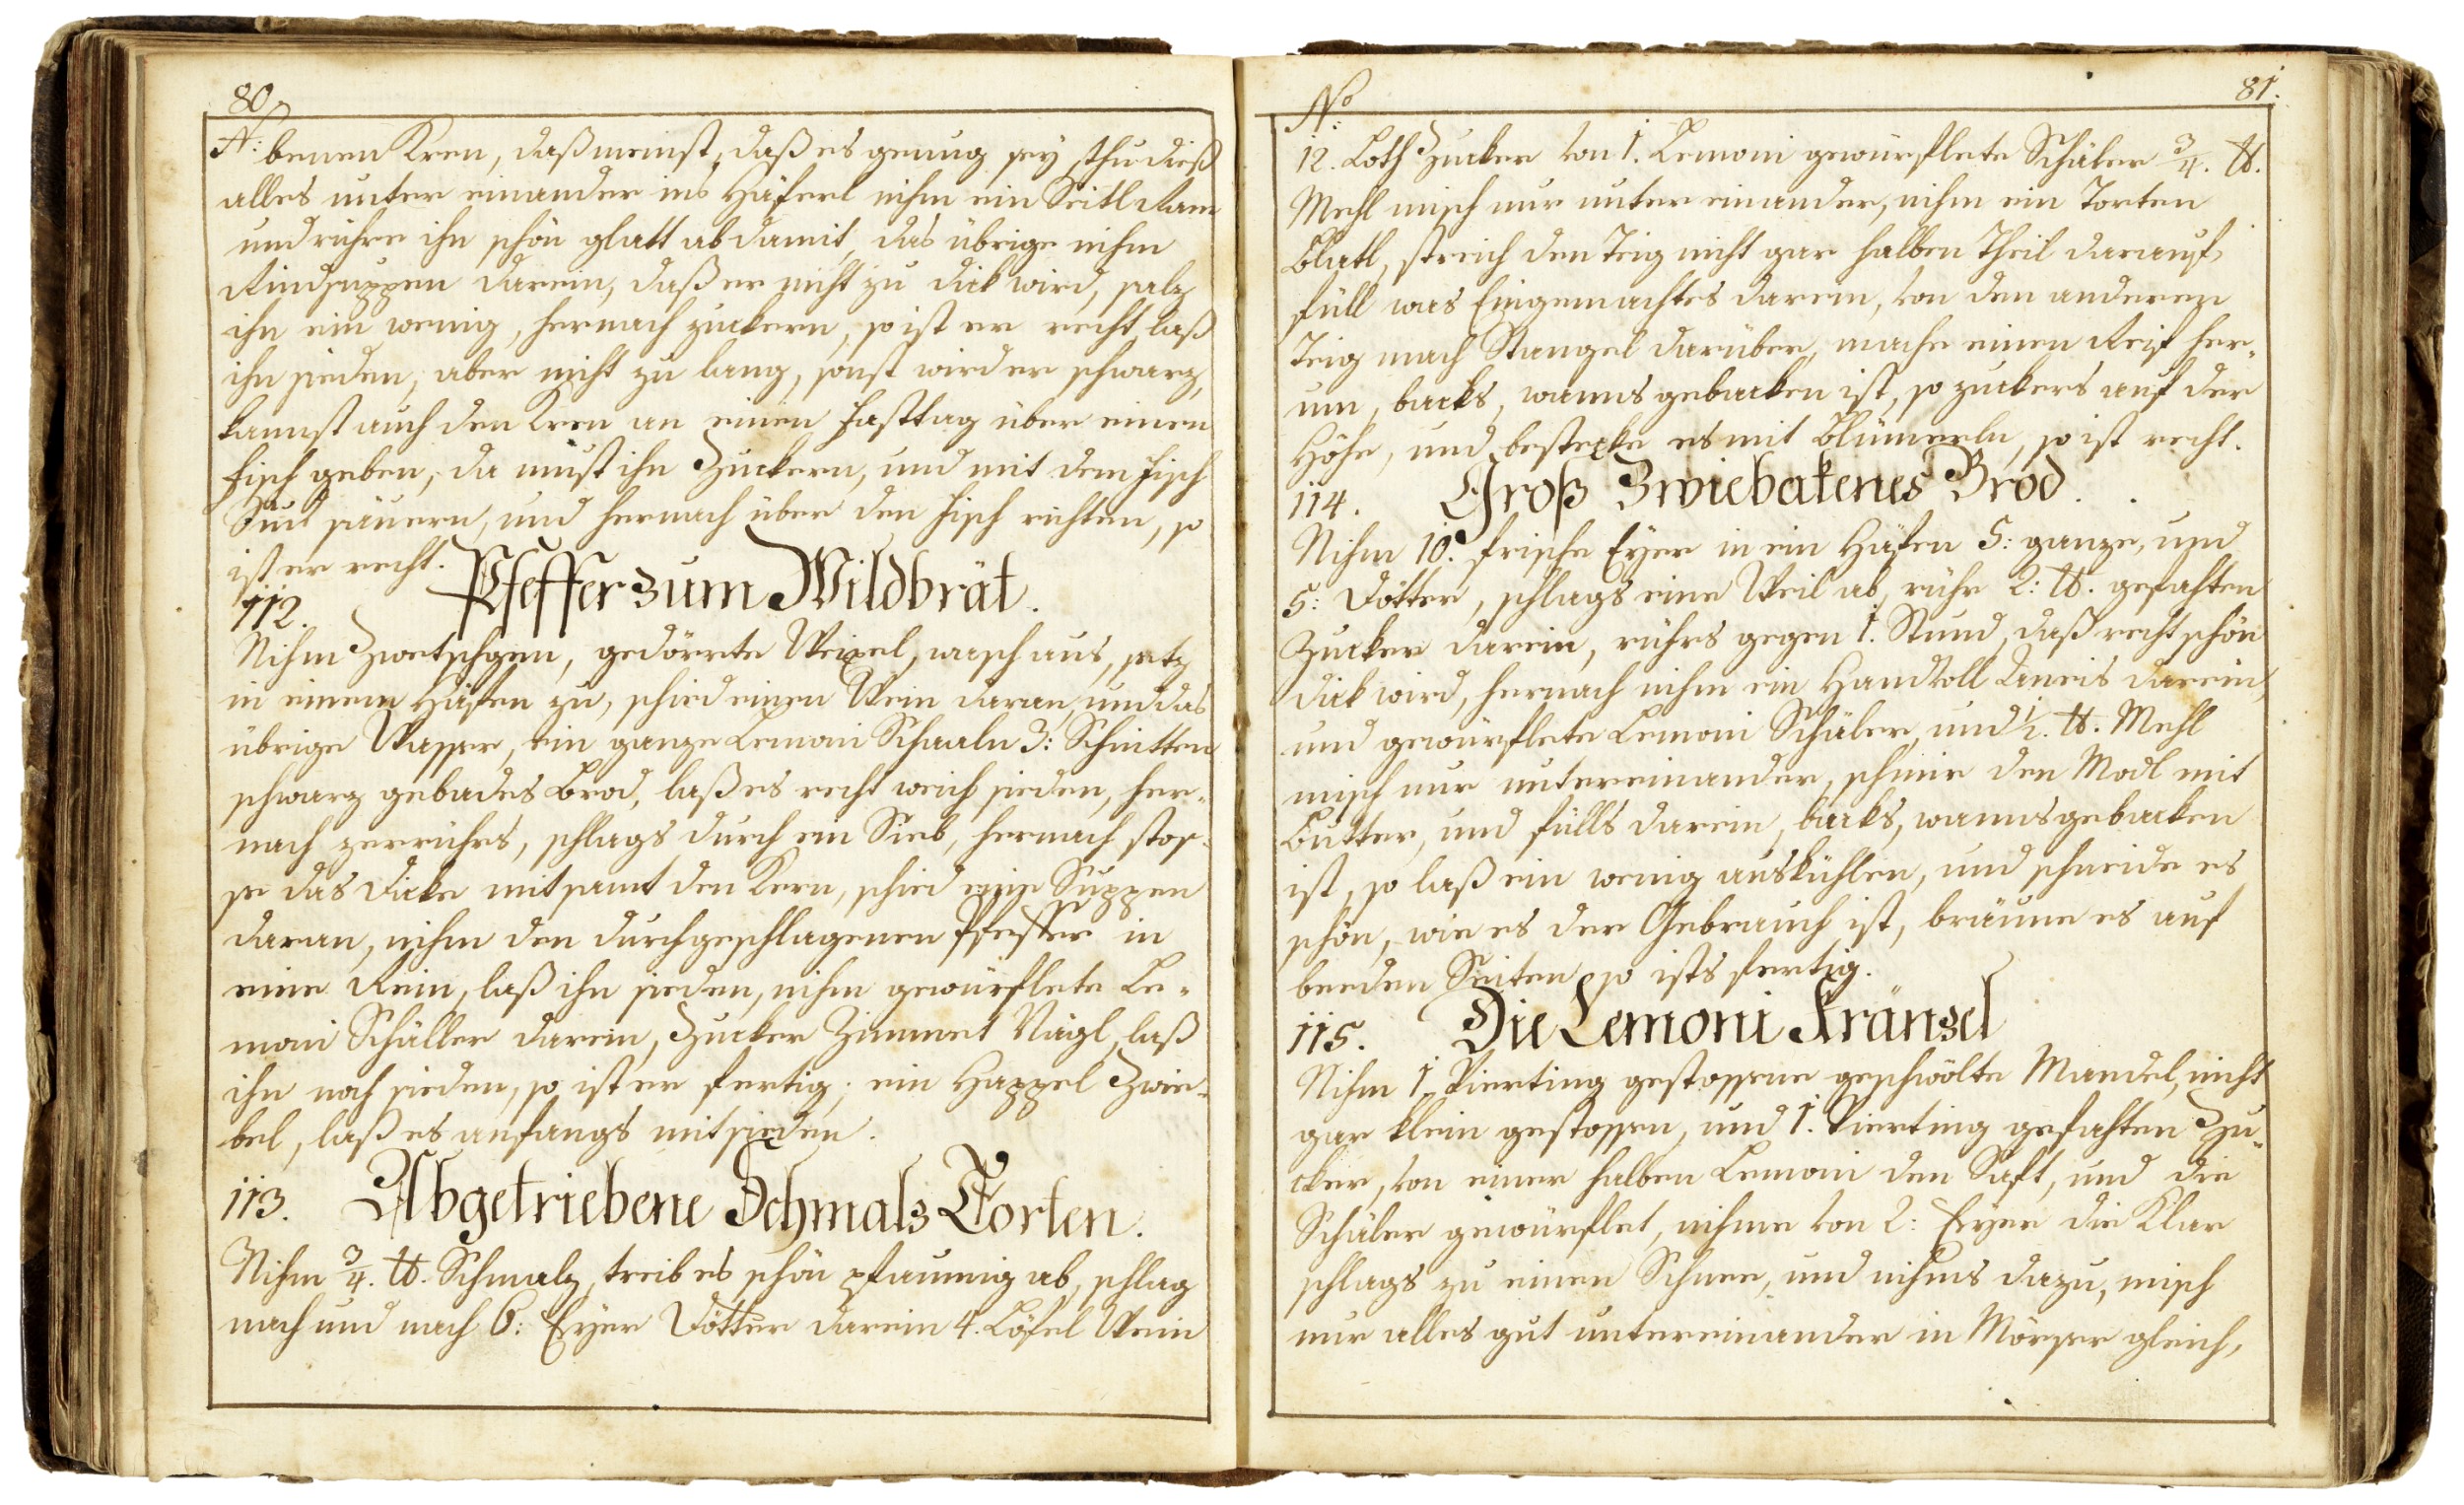 80.
N: benen Kren, daß meinst, daß es genug sey, thu dieß
alles unter einander ins Häferl nihm ein Seitl Ram
und rühre ihn schön glatt ab damit, das übrige nihm
Rindsuppen darein, daß er nicht zu dick wird, salz
ihn ein wenig, hernach zuckern, so ist er recht, laß
ihn sieden, aber nicht zu lang, sonst wird er schwarz,
kannst auch den Kren an einen Fasttag über einen
Fisch geben, da must ihn Zuckern, und mit dem Fisch
Sud säuern, und hernach über den Fisch richten, so
ist er recht.
112. Pfeffer zum Wildbrät.
Nihm Zwetschgen, gedörrte Weixel, wasch aus, setz
in einem Häfen zu, schied einen Wein daran, und das
übrige Wasser, ein ganze Lemoni Schaaln 3: Schnitten
schwarz gebades Brod, laß es recht weich sieden, her-
nach zerrührs, schlags durch ein Sieb, hernach stos-
se das Dicke mitsamt den Kern, schied eine Suppen
daran, nihm den durchgeschlagenen Pfeffer in
eine Rein, laß ihn sieden, nihm gewürflete Le-
moni Schäller darein, Zucker Zimmet Nägl, laß
ihn noch sieden, so ist er fertig; ein Happel Zwie-
bel, laß es anfangs mitsieden.
113. Abgetriebene Schmalz Torten.
Nihm 3/4. ℔. Schmalz, treib es schön pfaumig ab, schlag
nach und nach 6: Eyer Dötter darein 4. Löfel Wein
No 81.
12. Loth Zucker von 1. Lemoni gewürflete Schäler 3/4. ℔.
Mehl misch nur unter einander, nihm ein Torten
Blatl, streich den Teig nicht gar halben Theil darauf,
füll was Eingemachtes darein, von den anderen
Teig mach Stangel darüber, mache einen Reif her-
um, backs, wanns gebacken ist, so zuckers auf der
Höhe, und bestecke es mit Blümerln, so ist recht.
114. Groß Zwiebakenes Brod.
Nihm 10. frische Eyer in ein Häfen 5: ganze, und
5: Dötter, schlags eine Weil ab, rühr 2: ℔. gefahten
Zucker darein, rührs gegen 1. Stund, daß recht schön
dick wird, hernach nihm ein Handvoll Aneis darein,
und gewürflete Lemoni Schäler, und 1/2. ℔. Mehl
misch nur untereinander, schmir den Modl mit
Butter, und fülls darein, backs, wanns gebacken
ist, so laß ein wenig auskühlen, und schneide es
schön, wie es der Gebrauch ist, bräune es auf
beeden Seiten, so ists fertig.
115. Die Lemoni Kränzel
Nihm 1. Vierting gestossene geschwölte Mandel, nicht
gar klein gestossen, und 1. Vierting gefahten Zu-
cker, von einer halben Lemoni den Saft, und die
Schäler gewürflet, nihme von 2: Eyer die Klar
schlags zu einen Schnee, und nihms dazu, misch
nur alles gut untereinander in Mörser gleich,